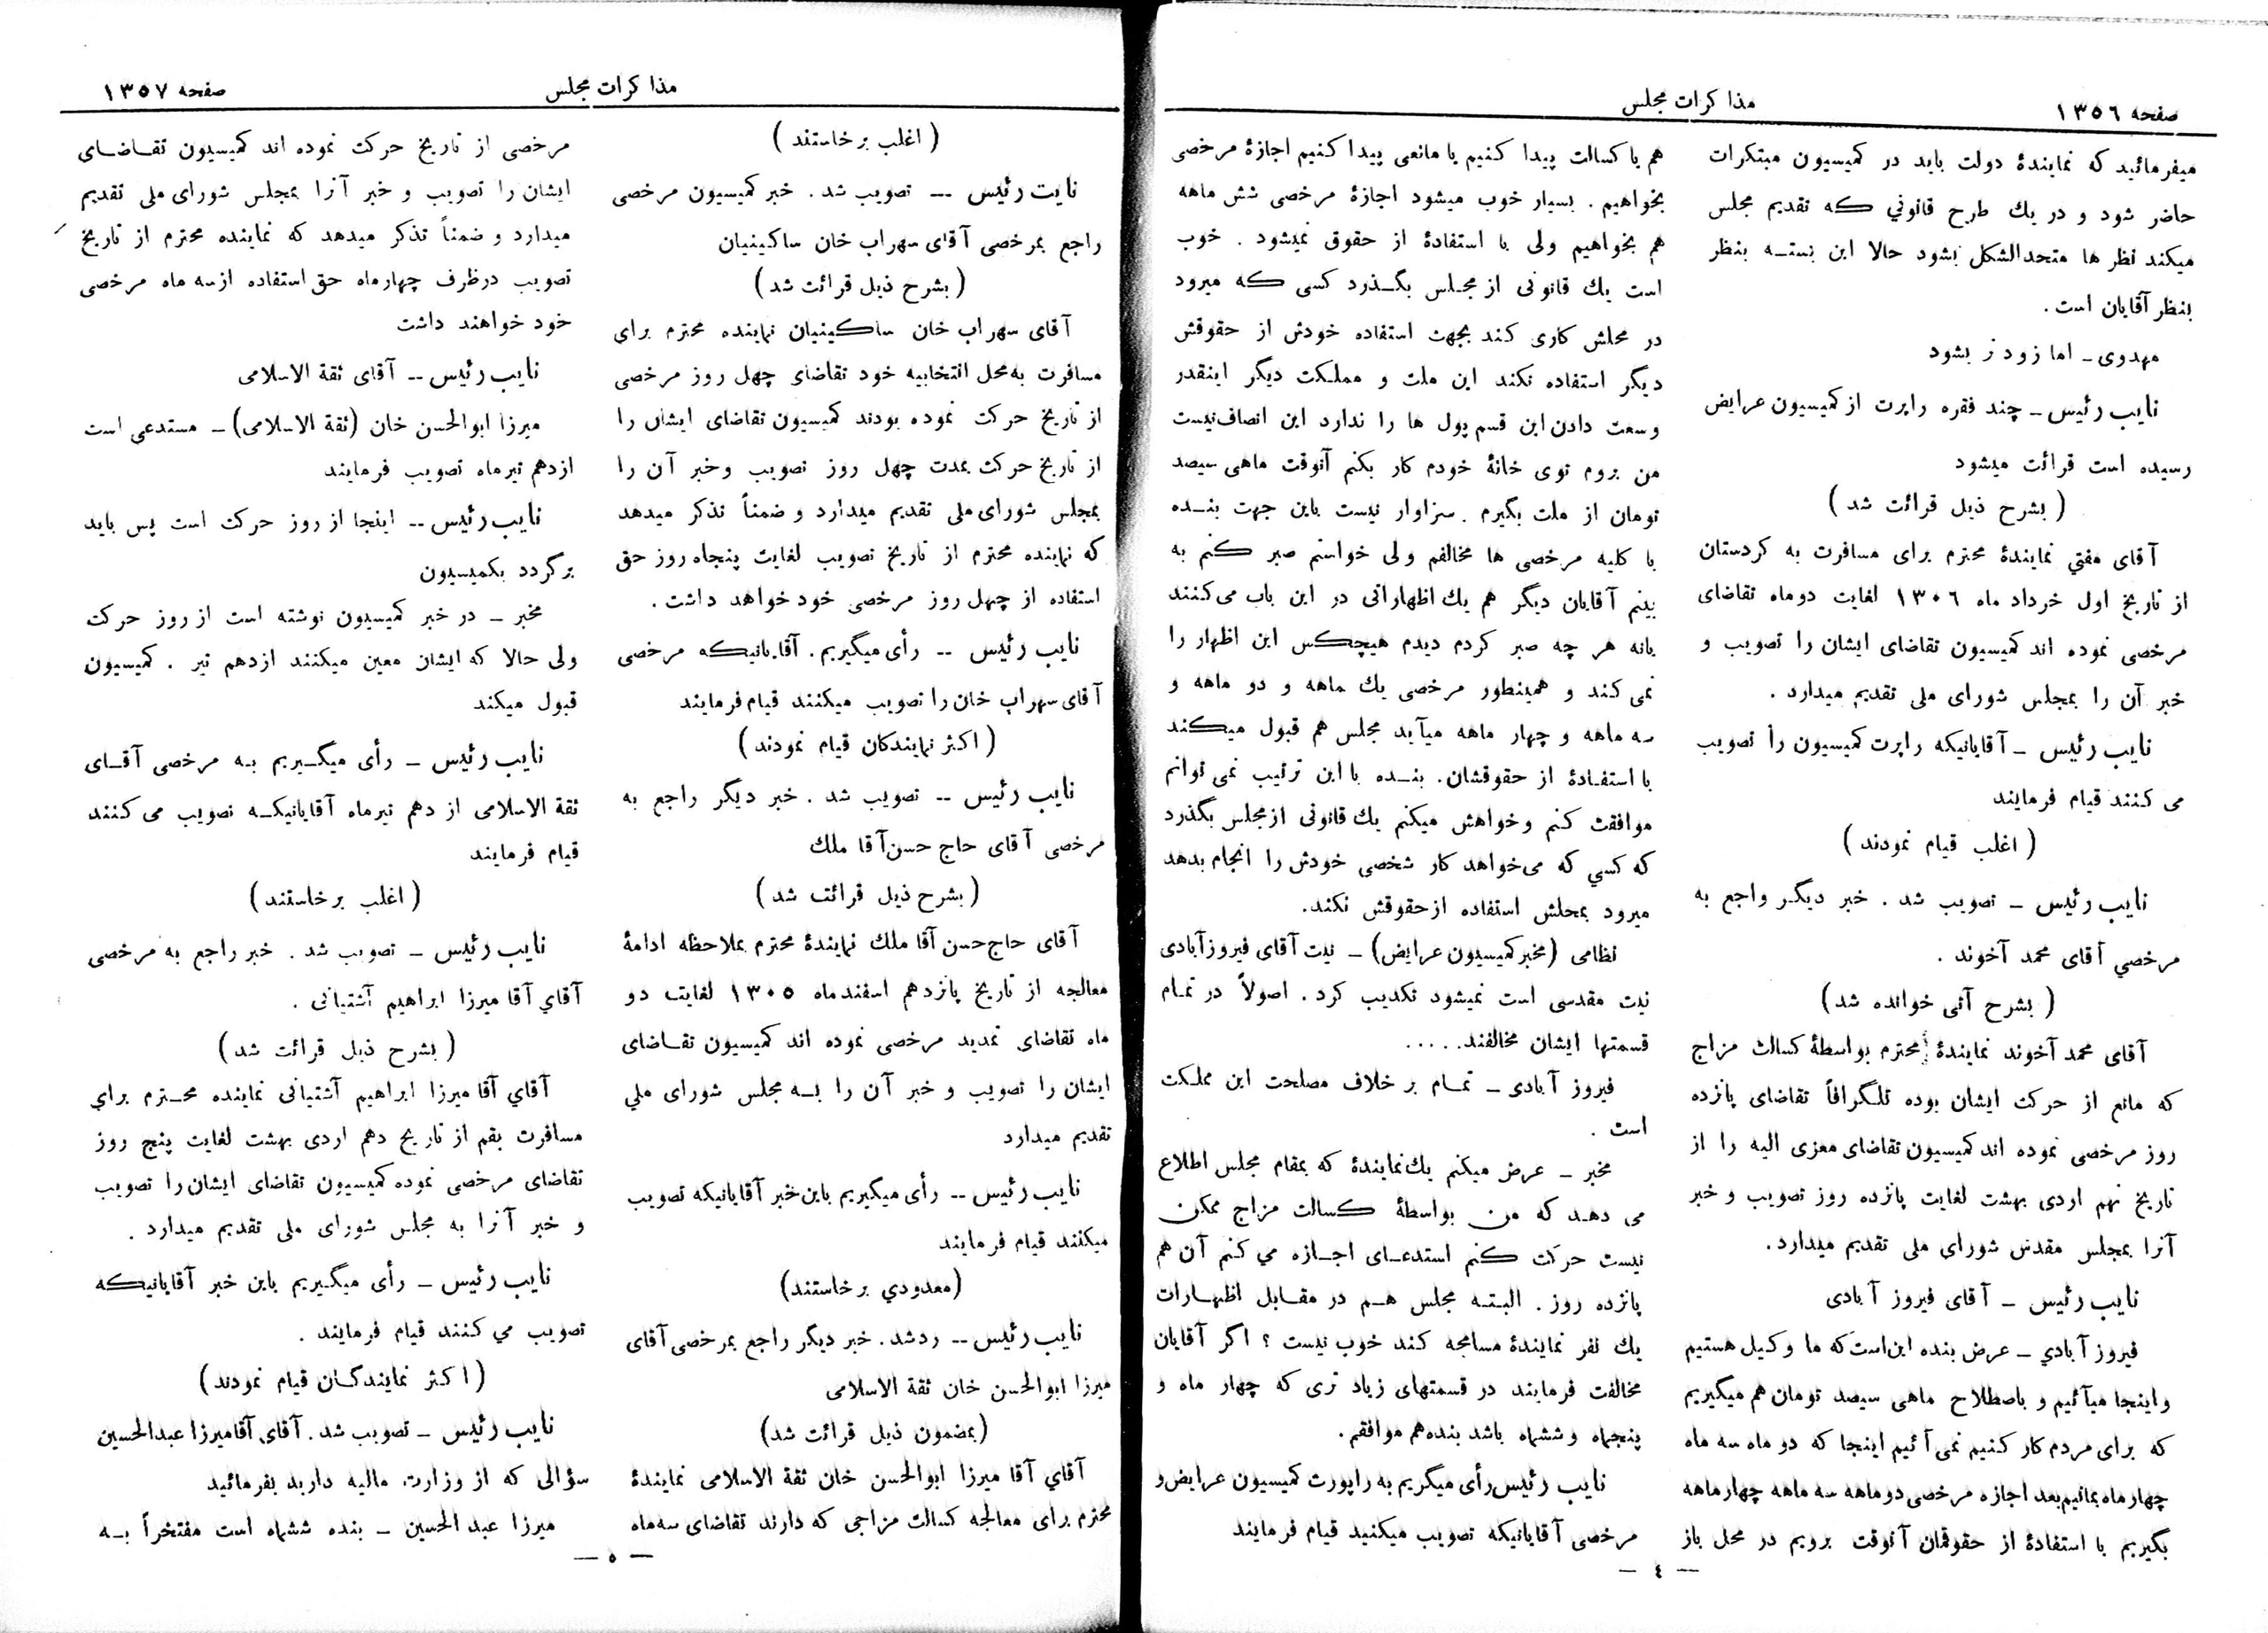 صفحه ۱۳۵٦
مذاکرات مجلس
میفرمائید که نمایندهٔ دولت باید در کمیسیون مبتکرات
حاضر شود و در یك طرح قانوني که تقدیم مجلس
میکند نظر ها متحدالشکل بشود حالا این بسته بنظر
بنظر آقایان است .
مهدوی ـ اما زود تر بشود
نایب رئیس ـ چند فقره راپرت از کمیسیون عرایض
رسیده است قرائت میشود
( بشرح ذیل قرائت شد )
آقای مفتي نمایندهٔ محترم برای مسافرت به کردستان
از تاریخ اول خرداد ماه ۱۳۰٦ لغایت دوماه تقاضای
مرخصی نموده اند کمیسیون تقاضای ایشان را تصویب و
خبر آن را بمجلس شورای ملی تقدیم میدارد .
نایب رئیس ـ آقایانیکه راپرت کمیسیون را تصویب
می کنند قیام فرمایند
( اغلب قیام نمودند )
نایب رئیس ـ تصویب شد . خبر دیگر واجع به
مرخصي آقای محمد آخوند .
( بشرح آتی خوانده شد )
آقای محمد آخوند نمایندهٔ محترم بواسطهٔ کسالت مزاج
که مانع از حرکت ایشان بوده تلگرافاً تقاضای پانزده
روز مرخصی نموده اند کمیسیون تقاضای معزی الیه را از
تاریخ نهم اردی بهشت لغایت پانزده روز تصویب و خبر
آنرا بمجلس مقدس شورای ملی تقدیم میدارد.
نایب رئیس ـ آقای فیروز آبادی
فیروز آبادي ـ عرض بنده این‌است که ما وکیل هستیم
و اینجا میآئیم و باصطلاح ماهی سیصد تومان هم میگیریم
که برای مردم کار کنیم نمی آئیم اینجا که دو ماه سه ماه
چهار ماه بمانیم بعد اجازه مرخصی دو ماهه سه ماهه چهار ماهه
بگیریم با استفادهٔ از حقوقمان آنوقت برویم در محل باز
هم یا کسالت پیدا کنیم یا مانعی پیدا کنیم اجازهٔ مرخصی
بخواهیم . بسیار خوب میشود اجازهٔ مرخصی شش ماهه
هم بخواهیم ولی با استفادهٔ از حقوق نمیشود . خوب
است یك قانونی از مجلس بگذرد کسی که میرود
در محلش کاری کند بجهت استفاده خودش از حقوقش
دیگر استفاده نکند این ملت و مملکت دیگر اینقدر
وسعت دادن این قسم پول ها را ندارد این انصاف نیست
من بروم توی خانهٔ خودم کار بکنم آنوقت ماهی سیصد
تومان از ملت بگیرم . سزاوار نیست باین جهت بنده
با کلیه مرخصی ها مخالفم ولی خواستم صبر کنم به
بینم آقایان دیگر هم یك اظهاراتی در این باب می‌کنند
یانه هر چه صبر کردم دیدم هیچکس این اظهار را
نمی کند و همینطور مرخصی یك ماهه و دو ماهه و
سه ماهه و چهار ماهه میآید مجلس هم قبول میکند
با استفادهٔ از حقوقشان. بنده با این ترتیب نمی توانم
موافقت کنم و خواهش میکنم یك قانونی از مجلس بگذرد
که کسي که می‌خواهد کار شخصی خودش را انجام بدهد
میرود بمحلش استفاده از حقوقش نکند.
نظامی (مخبر کمیسیون عرایض) ـ نیت آقای فیروزآبادی
نیت مقدسی است نمیشود تکذیب کرد . اصولاً در تمام
قسمتها ایشان مخالفند.....
فیروز آبادی ـ تمام بر خلاف مصلحت این مملکت
است .
مخبر ـ عرض میکنم یك نمایندهٔ که بمقام مجلس اطلاع
می دهد که من بواسطهٔ کسالت مزاج ممکن
نیست حرکت کنم استدعای اجازه می کنم آن هم
پانزده روز . البته مجلس هم در مقابل اظهارات
یك نفر نمایندهٔ مسامحه کند خوب نیست ؟ اگر آقایان
مخالفت فرمایند در قسمتهای زیاد تری که چهار ماه و
پنجماه و ششماه باشد بنده هم موافقم.
نایب رئیس رأی میگیریم به راپورت کمیسیون عرایض و
مرخصی آقایانیکه تصویب میکنید قیام فرمایند
— ٤ —
مذاکرات مجلس
صفحه ۱۳۵۷
( اغلب بر خاستند )
نایت رئیس -- تصویب شد . خبر کمیسیون مرخصی
راجع بمرخصی آقای سهراب خان ساکینیان
( بشرح ذیل قرائت شد )
آقای سهراب خان ساکینیان نماینده محترم برای
مسافرت به محل انتخابیه خود تقاضای چهل روز مرخصی
از تاریخ حرکت نموده بودند کمیسیون تقاضای ایشان را
از تاریخ حرکت بمدت چهل روز تصویب وخبر آن را
بمجلس شورای ملی تقدیم میدارد و ضمناً تذکر میدهد
که نماینده محترم از تاریخ تصویب لغایت پنجاه روز حق
استفاده از چهل روز مرخصی خود خواهد داشت .
نایب رئیس -- رأی میگیریم . آقایانیکه مرخصی
آقای سهراب خان را تصویب میکنند قیام فرمایند
( اکثر نمایندکان قیام نمودند )
نایب رئیس -- تصویب شد . خبر دیگر راجع به
مرخصی آقای حاج حسن آقا ملك
( بشرح ذیل قرائت شد )
آقای حاج حسن آقا ملك نمایندهٔ محترم بملاحظه ادامهٔ
معالجه از تاریخ پانزدهم اسفندماه ۱۳۰۵ لغایت دو
ماه تقاضای تمدید مرخصی نموده اند کمیسیون تقاضای
ایشان را تصویب و خبر آن را به مجلس شورای ملي
تقدیم میدارد
نایب رئیس -- رأی میگیریم باین خبر آقایانیکه تصویب
میکنند قیام فرمایند
(معدودي بر خاستند)
نایب رئیس -- ردشد . خبر دیگر راجع بمرخصی آقای
میرزا ابوالحسن خان ثقة الاسلامی
(بمضمون ذیل قرائت شد)
آقاي آقا میرزا ابوالحسن خان ثقة الاسلامی نمایندهٔ
محترم برای معالجه کسالت مزاجی که دارند تقاضای سه‌ماه
مرخصی از تاریخ حرکت نموده اند کمیسیون تقاضای
ایشان را تصویب و خبر آنرا بمجلس شورای ملی تقدیم
میدارد و ضمناً تذکر میدهد که نماینده محترم از تاریخ
تصویب درظرف چهارماه حق استفاده از سه ماه مرخصی
خود خواهند داشت
نایب رئیس -- آقای ثقة الاسلامی
میرزا ابوالحسن خان (ثقة الاسلامی) ـ مستدعی است
ازدهم تیرماه تصویب فرمایند
نایب رئیس -- اینجا از روز حرکت است پس باید
برگردد بکمیسیون
مخبر ـ در خبر کمیسیون نوشته است از روز حرکت
ولی حالا که ایشان معین میکنند ازدهم تیر . کمیسیون
قبول میکند
نایب رئیس ـ رأی میگیریم به مرخصی آقای
ثقة الاسلامی از دهم تیرماه آقایانیکه تصویب می کنند
قیام فرمایند
( اغلب بر خاستند )
نایب رئیس ـ تصویب شد . خبر راجع به مرخصی
آقاي آقا میرزا ابراهیم آشتیانی .
( بشرح ذیل قرائت شد )
آقاي آقا میرزا ابراهیم آشتیانی نماینده محترم براي
مسافرت بقم از تاریخ دهم اردی بهشت لغایت پنج روز
تقاضای مرخصی نموده کمیسیون تقاضای ایشان را تصویب
و خبر آنرا به مجلس شورای ملی تقدیم میدارد .
نایب رئیس ـ رأی میگیریم باین خبر آقایانیکه
تصویب مي کنند قیام فرمایند .
( اکثر نمایندگان قیام نمودند )
نایب رئیس ـ تصویب شد . آقای آقامیرزا عبدالحسین
سؤالی که از وزارت مالیه دارید بفرمائید
میرزا عبد الحسین ـ بنده ششماه است مفتخراً به
— ۵ —